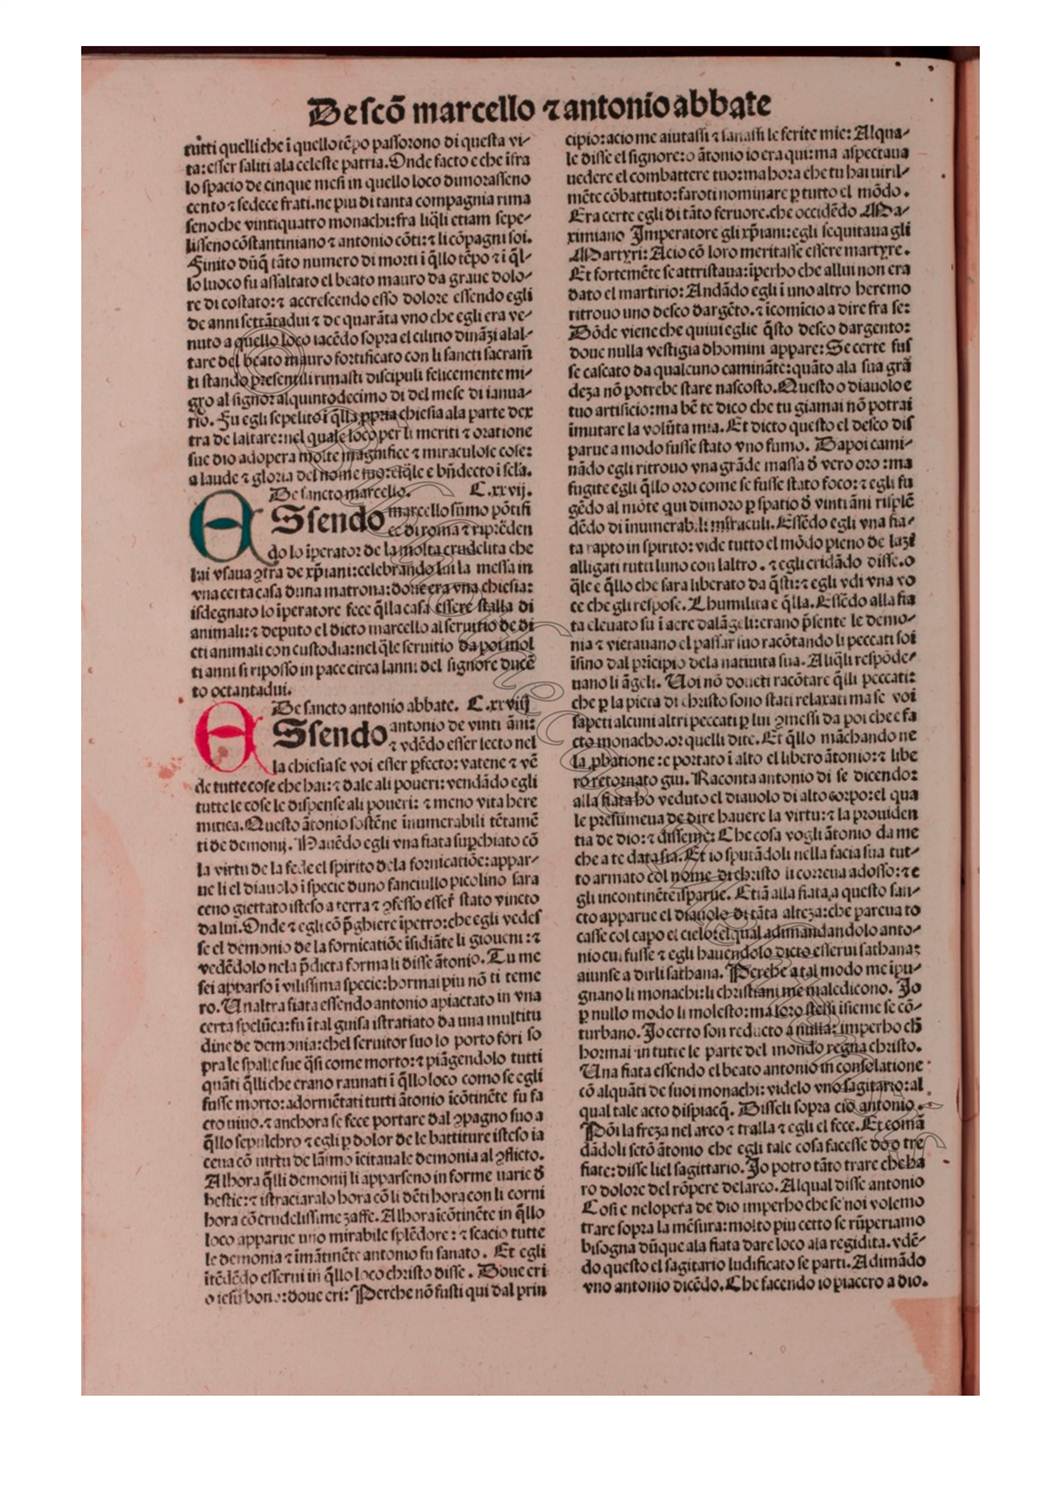 De scō marcello ⁊ antonio abbate
tutti quelli che ī quello tēpo passorono di questa vi-
ta: esser saliti ala celeste patria. Onde facto e che īfra
lo spacio de cinque mesi in quello loco dimorasseno
cento ⁊ sedece frati. ne piu di tanta compagnia rima
seno che vintiquatro monachi: fra liq̄li etiam sepe-
lisseno cōstantiniano ⁊ antonio cōti: ⁊ li cōpagni soi.
Finito dūq̄ tāto numero di morti ī q̄llo tēpo ⁊ ī q̄l-
lo luoco fu assaltato el beato mauro da graue dolo-
re di costato: ⁊ accrescendo esso dolore essendo egli
de anni settātadui ⁊ de quarāta vno che egli era ve-
nuto a quello loco iacēdo sopra el cilitio dināzi alal-
tare del beato mauro fortificato con li sancti sacram̄
ti stando presentili rimasti discipuli felicemente mi-
gro al signor alquintodecimo di del mese di ianua-
rio. Fu egli sepelito ī q̄lla ꝓpria chiesia ala parte dex
tra de laltare: nel quale loco per li meriti ⁊ oratione
sue dio adopera molte magnifice ⁊ miraculose cose:
a laude ⁊ gloria del nome
De sancto marcello. C. xxvij.
ESsendo marcello sūmo pōtifi
ce di roma ⁊ riprēden
do lo īperator de la molta crudelita che
lui vsaua ꝯtra de xp̄iani: celebrando lui la messa in
vna certa casa duna matrona: doue era vna chiesia:
isdegnato lo īperatore fece q̄lla casa essere stalla di
animali: ⁊ deputo el dicto marcello al seruitio de di
cti animali con custodia: nel q̄le seruitio da poi mol
ti anni si riposso in pace circa lanni del signore ducē
to octantadui.
De sancto antonio abbate. C. xxviij
ESsendo antonio de vinti āni:
⁊ vdēdo esser lecto nel
la chiesia se voi esser ꝑfecto: vatene ⁊ vē
de tutte cose che hai: ⁊ dale ali poueri: vendādo egli
tutte le cose le dispense ali poueri: ⁊ meno vita here
mitica. Questo ātonio sostēne īnumerabili tētamē
ti de demonij. Hauēdo egli vna fiata supchiato cō
la virtu de la fede el spirito dela fornicatiōe: appar-
ue li el diauolo ī specie duno fanciullo picolino sara
ceno giettato isteso a terra ⁊ ꝯfesso esser stato vincto
da lui. Onde ⁊ egli cō p̄ghiere īpetro: che egli vedes
se el demonio de la fornicatiōe īsidiāte li gioueni: ⁊
vedēdolo nela p̄dicta forma li disse ātonio. Tu me
sei apparso ī vilissima specie: hormai piu nō ti teme
ro. Unaltra fiata essendo antonio apiactato in vna
certa spelūca: fu ī tal guisa istratiato da una multitu
dine de demonia: chel seruitor suo lo porto fori so
pra le spalle sue q̄si come morto: ⁊ piāgendolo tutti
quāti q̄lli che erano raunati ī q̄llo loco como se egli
fusse morto: adormētati tutti ātonio īcōtinēte fu fa
cto uiuo. ⁊ anchora se fece portare dal ꝯpagno suo a
q̄llo sepulchro ⁊ egli ꝑ dolor de le battiture isteso ia
ceua cō uirtu de lāimo īcitaua le demonia al ꝯflicto.
Alhora q̄lli demonij li apparseno in forme uarie d̄
bestie: ⁊ istraciaralo hora cō li dēti hora con li corni
hora cō crudelissime zaffe. Alhora īcōtinēte in q̄llo
loco apparue uno mirabile splēdore: ⁊ scacio tutte
le demonia ⁊ imātinēte antonio fu sanato. Et egli
itēdēdo esserui in q̄llo loco christo disse. Doue eri
o iesu bono: doue eri: Perche nō fusti qui dal prin
cipio: acio me aiutassi ⁊ sanassi le ferite mie: Alqua-
le disse el signore: o ātonio io era qui: ma aspectaua
uedere el combattere tuo: ma hora che tu hai uiril-
mēte cōbattuto: faroti nominare ꝑ tutto el mōdo.
Era certe egli di tāto feruore. che occidēdo Ma-
ximiano Imperatore gli xp̄iani: egli sequitaua gli
Martyri: Acio cō loro meritasse essere martyre.
Et fortemēte se attristaua: iperho che allui non era
dato el martirio: Andādo egli ī uno altro heremo
ritrouo uno desco dargēto. ⁊ icomicio a dire fra se:
Dōde viene che quiui eglie q̄sto desco dargento:
doue nulla vestigia dhomini appare: Se certe fus
se cascato da qualcuno caminate: quāto ala sua grā
deza nō potrebe stare nascosto. Questo o diauolo e
tuo artificio: ma bē te dico che tu giamai nō potrai
īmutare la volūta mia. Et dicto questo el desco dis
parue a modo fusse stato vno fumo. Dapoi cami-
nādo egli ritrouo vna grāde massa d̄ vero oro: ma
fugite egli q̄llo oro come se fusse stato foco: ⁊ egli fu
gēdo al mōte qui dimoro ꝑ spatio d̄ vinti āni risplē
dēdo di īnumerabili miraculi. Essēdo egli vna fia-
ta rapto in spirito: vide tutto el mōdo pieno de lazi
alligati tutti luno con laltro. ⁊ egli cridādo disse. o
q̄le e q̄llo che sara liberato da q̄sti: ⁊ egli vdi vna vo
ce che gli respose. Lhumilita e q̄lla. Essēdo alla fia
ta eleuato su ī aere dalāgeli: erano p̄sente le demo-
nia ⁊ vietauano el passar suo racōtando li peccati soi
īsino dal pricipio dela natiuita sua. Aliq̄li respōde-
uano li āgeli. Uoi nō doueti racōtare q̄lli peccati:
che ꝑ la pieta di christo sono stati relaxati ma se voi
sapeti alcuni altri peccati ꝑ lui ꝯmessi da poi che e fa
cto monacho. or quelli dite. Et q̄llo māchando ne
la ꝓbatione: e portato ī alto el libero ātonio: ⁊ libe
ro retornato giu. Raconta antonio di se dicendo:
alla fiata ho veduto el diauolo di alto corpo: el qua
le presumeua de dire hauere la virtu: ⁊ la prouiden
tia de dio: ⁊ disseme: Che cosa vogli ātonio da me
che a te data sia. Et io sputādoli nella facia sua tut-
to armato col nome di christo li correua adosso: ⁊ e
gli incontinēte isparue. Etiā alla fiata, a questo san-
cto apparue el diauolo di tāta alteza: che pareua to
casse col capo el cielo: el qual adimandandolo anto-
nio cui fusse ⁊ egli hauendolo dicto esserui sathana:
aiunse a dirli sathana. Perche a tal modo me ipu-
gnano li monachi: li christiani me maledicono. Io
ꝑ nullo modo li molesto: ma loro stessi isieme se cō-
turbano. Io certo son reducto a nulla: imperho ch̄
hormai in tute le parte del mondo regna christo.
Una fiata essendo el beato antonio in consolatione
cō alquāti de suoi monachi: videlo vno sagitario: al
qual tale acto dispiacq̄. Disseli sopra cio antonio.
Pōi la freza nel arco ⁊ tralla ⁊ egli el fece. Et comā
dādoli sctō ātonio che egli tale cosa facesse doo o tre
fiate: disse liel sagittario. Io potro tāto trare che ha
ro dolore del rōpere delarco. Alqual disse antonio
Cosi e nelopera de dio imperho che se noi volemo
trare sopra la mēsura: molto piu certo se rūperiamo
bisogna dūque ala fiata dare loco ala regidita. vdē-
do questo el sagitario ludificato se parti. Adimādo
vno antonio dicēdo. Che facendo io piacero a dio.